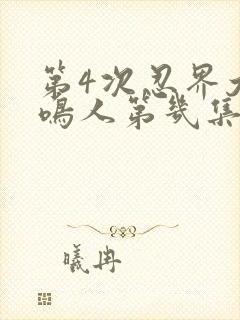 第4次忍界大
鳴人第幾集
曦冉